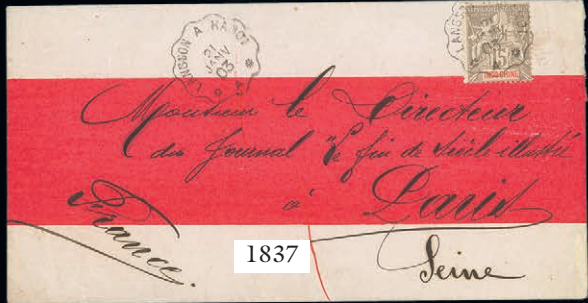 LANGSON A HANOI
21
JANV
03
15
INDO-CHINE
Monsieur le Directeur
du Journal "Le fin de Siècle illustré
à Paris
France.
Seine
1837